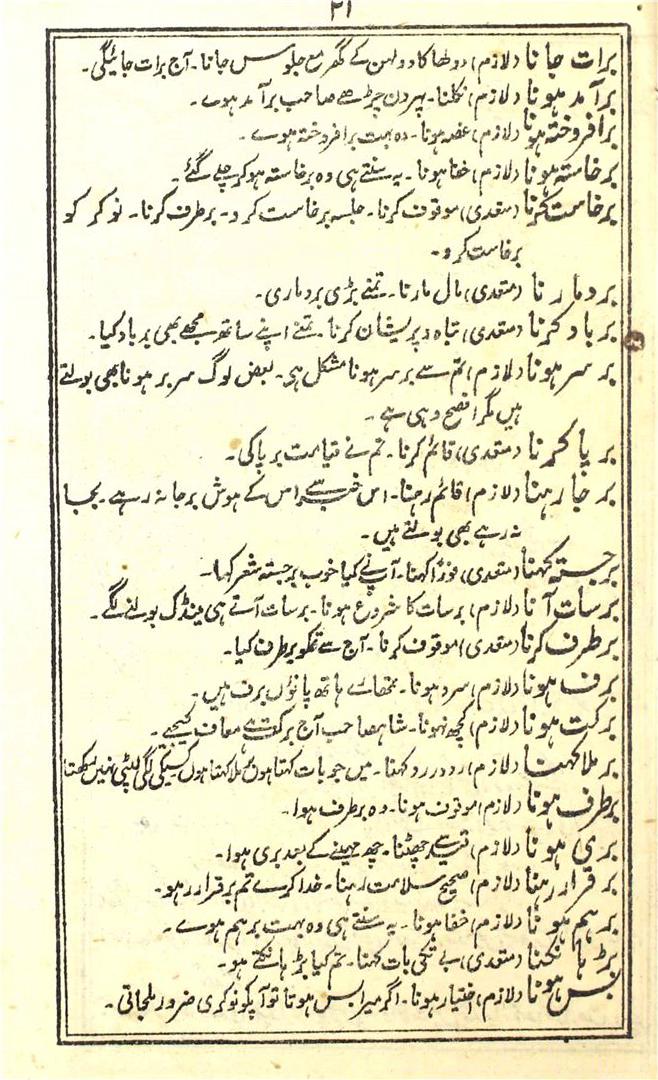 ۲۱
برات جانا (لازم) دولھا کا دولہن کے گھر مع جلوس جانا۔ آج برات جائیگی۔
برآمد ہونا (لازم) نکلنا۔ پہر دن چڑھے صاحب برآمد ہوے۔
برافروختہ ہونا (لازم) غصہ ہونا۔ وہ بہت برافروختہ ہوے۔
برخاستہ ہونا (لازم) خفا ہونا۔ یہ سنتے ہی وہ برخاستہ ہوکر چلے گئے۔
برخاست کرنا (متعدی) موقوف کرنا۔ جلسہ برخاست کرو۔ برطرف کرنا۔ نوکر کو
برخاست کرو۔
بردمارنا (متعدی) مال مارنا۔ تمنے بڑی بردماری۔
برباد کرنا (متعدی) تباہ و پریشان کرنا۔ تمنے اپنے ساتھ مجھے بھی برباد کیا۔
برسر ہونا (لازم) تم سے برسر ہونا مشکل ہی۔ بعض لوگ سربر ہونا بھی بولتے
ہیں مگر افصح وہی ہے۔
برپا کرنا (متعدی) قائم کرنا۔ تم نے قیامت برپا کی۔
برجا رہنا (لازم) قائم رہنا۔ اس خبر سے اس کے ہوش برجا نہ رہے۔ بجا
نہ رہے بھی بولتے ہیں۔
برجستہ کہنا (متعدی) فوراً کہنا۔ آپنے کیا خوب برجستہ شعر کہا۔
برسات آنا (لازم) برسات کا شروع ہونا۔ برسات آتے ہی مینڈک بولنے لگے۔
برطرف کرنا (متعدی) موقوف کرنا۔ آج سے تمکو برطرف کیا۔
برف ہونا (لازم) سرد ہونا۔ تمھارے ہاتھ پانوں برف ہیں۔
برکت ہونا (لازم) کچھ نہونا۔ شاہصاحب آج برکت ہے معاف کیجیے۔
برملا کہنا (لازم) رو در رو کہنا۔ میں جو بات کہتا ہوں برملا کہتا ہوں کسیکی لگی لپٹی نہیں رکھتا
برطرف ہونا (لازم) موقوف ہونا۔ وہ برطرف ہوا۔
بری ہونا (لازم) قید سے چھٹنا۔ چھ مہینے کے بعد بری ہوا۔
برقرار رہنا (لازم) صحیح سلامت رہنا۔ خدا کرے تم برقرار رہو۔
برہم ہونا (لازم) خفا ہونا۔ یہ سنتے ہی وہ بہت برہم ہوے۔
بڑ ہانکنا (متعدی) بے تکی بات کہنا۔ تم کیا بڑ ہانکتے ہو۔
بس ہونا (لازم) اختیار ہونا۔ اگر میرا بس ہوتا تو آپکو نوکری ضرور ملجاتی۔